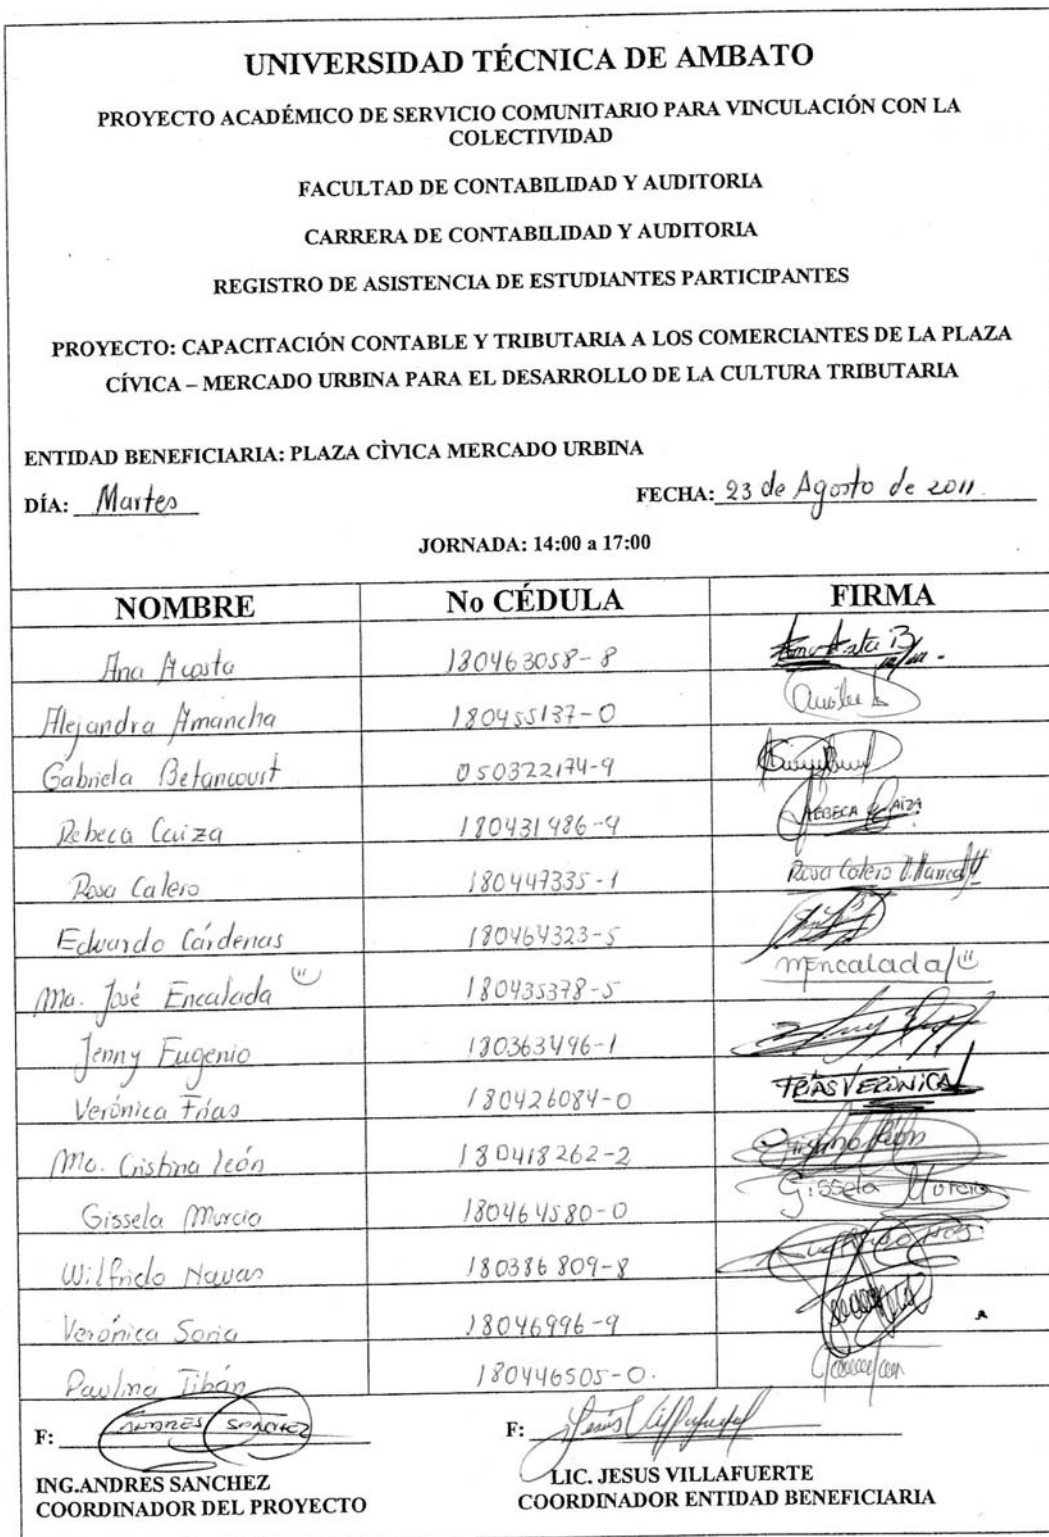 UNIVERSIDAD TÉCNICA DE AMBATO
PROYECTO ACADÉMICO DE SERVICIO COMUNITARIO PARA VINCULACIÓN CON LA
COLECTIVIDAD
FACULTAD DE CONTABILIDAD Y AUDITORIA
CARRERA DE CONTABILIDAD Y AUDITORIA
REGISTRO DE ASISTENCIA DE ESTUDIANTES PARTICIPANTES
PROYECTO: CAPACITACIÓN CONTABLE Y TRIBUTARIA A LOS COMERCIANTES DE LA PLAZA
CÍVICA – MERCADO URBINA PARA EL DESARROLLO DE LA CULTURA TRIBUTARIA
ENTIDAD BENEFICIARIA: PLAZA CÌVICA MERCADO URBINA
DÍA: Martes FECHA: 23 de Agosto de 2011.
JORNADA: 14:00 a 17:00
NOMBRE No CÉDULA FIRMA
Ana Acosta 180463058-8
Alejandra Amancha 180455137-0
Gabriela Betancourt 050322174-9
Rebeca Caiza 180431986-9 REBECA CAIZA
Rosa Calero 180447335-1 Rosa Calero
Eduardo Cárdenas 180464323-5
Ma. José Encalada 180435378-5 mencalada
Jenny Eugenio 180363496-1
Verónica Frías 180426084-0 FRÍAS VERÓNICA
Ma. Cristina León 180418262-2
Gissela Murcia 180464580-0 Gissela Murcia
Wilfrido Navas 180386809-8
Verónica Soria 18046996-9
Paulina Tibán 180446505-0.
F: ANDRES SANCHEZ F: Jesús Villafuerte
ING.ANDRES SANCHEZ LIC. JESUS VILLAFUERTE
COORDINADOR DEL PROYECTO COORDINADOR ENTIDAD BENEFICIARIA